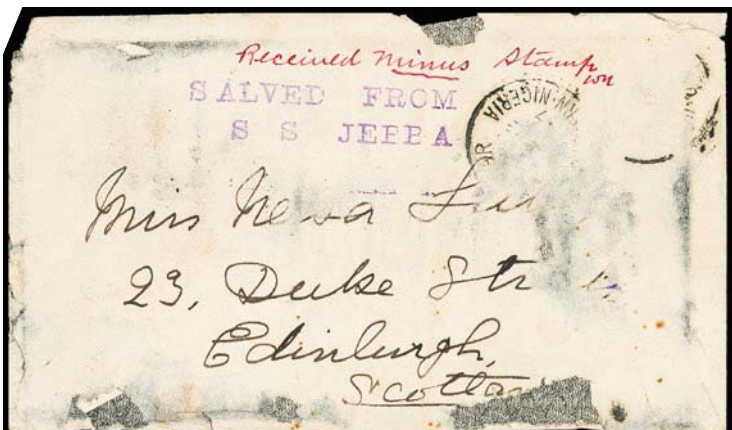 Received minus Stamp
SALVED FROM
S S JEBBA
RN-NIGERIA
Miss
23, Duke Str
Edinburgh,
Scotlan